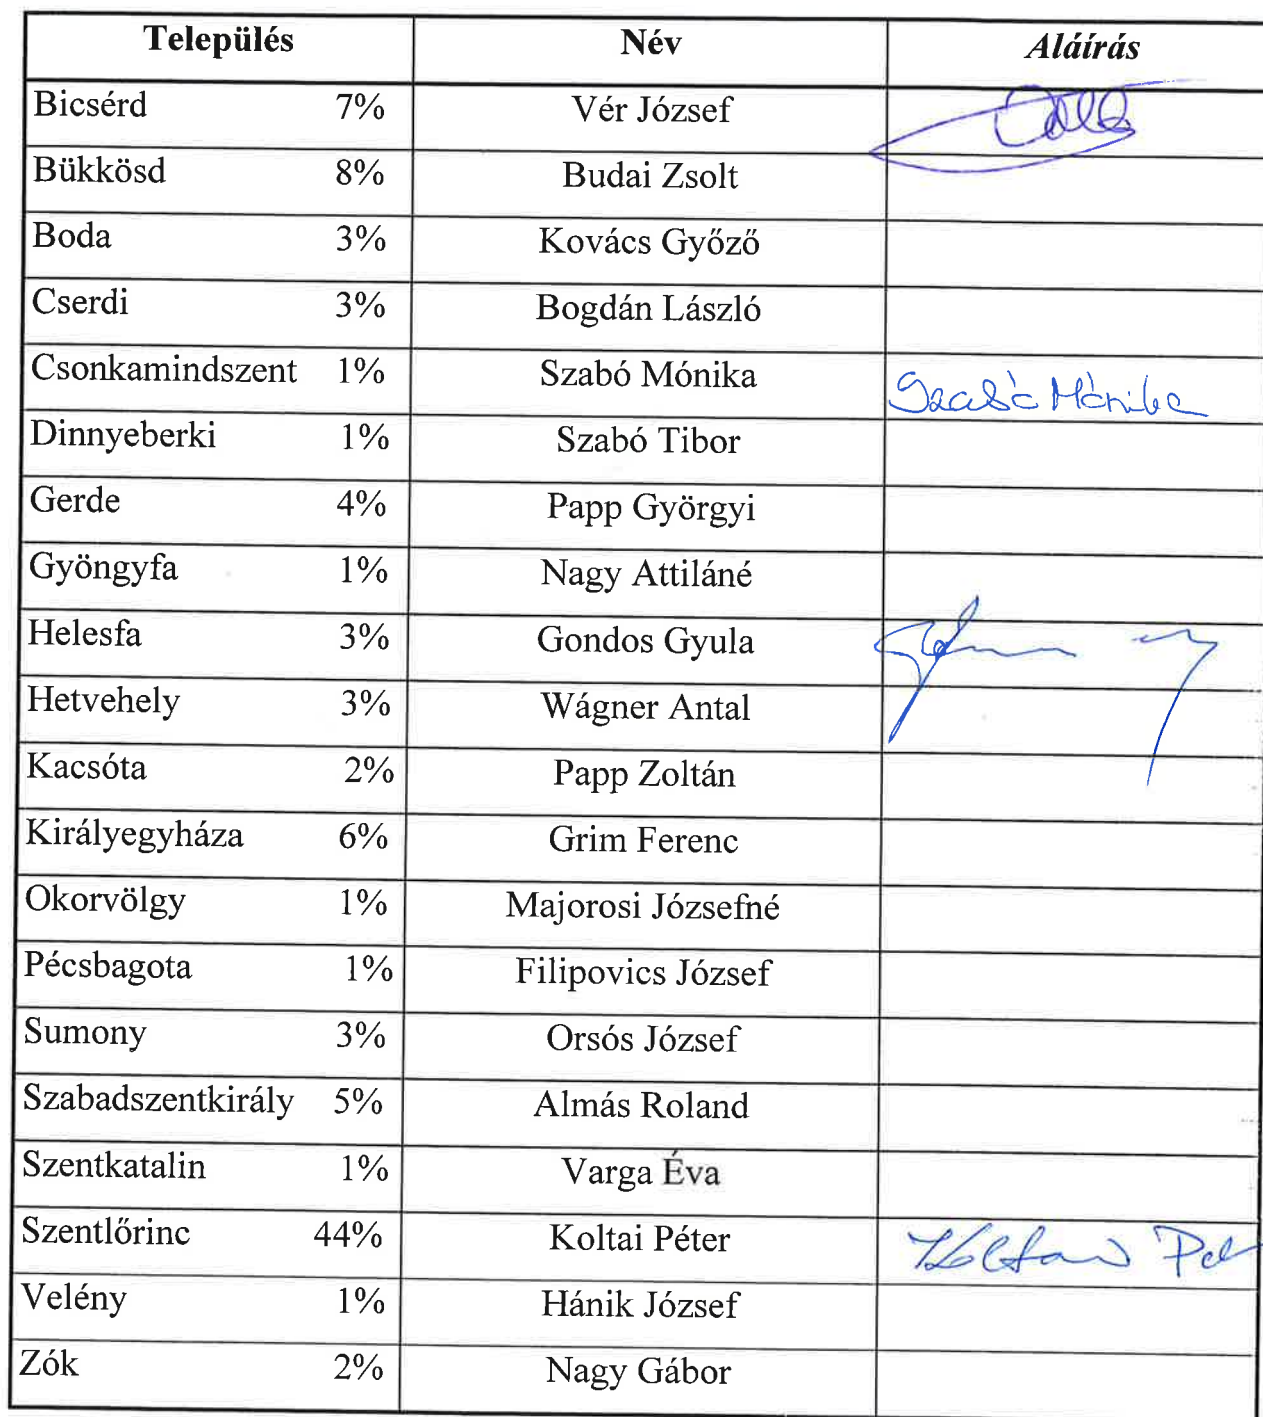 Település Név Aláírás
Bicsérd 7% Vér József
Bükkösd 8% Budai Zsolt
Boda 3% Kovács Győző
Cserdi 3% Bogdán László
Csonkamindszent 1% Szabó Mónika Szabó Mónika
Dinnyeberki 1% Szabó Tibor
Gerde 4% Papp Györgyi
Gyöngyfa 1% Nagy Attiláné
Helesfa 3% Gondos Gyula
Hetvehely 3% Wágner Antal
Kacsóta 2% Papp Zoltán
Királyegyháza 6% Grim Ferenc
Okorvölgy 1% Majorosi Józsefné
Pécsbagota 1% Filipovics József
Sumony 3% Orsós József
Szabadszentkirály 5% Almás Roland
Szentkatalin 1% Varga Éva
Szentlőrinc 44% Koltai Péter
Velény 1% Hánik József
Zók 2% Nagy Gábor